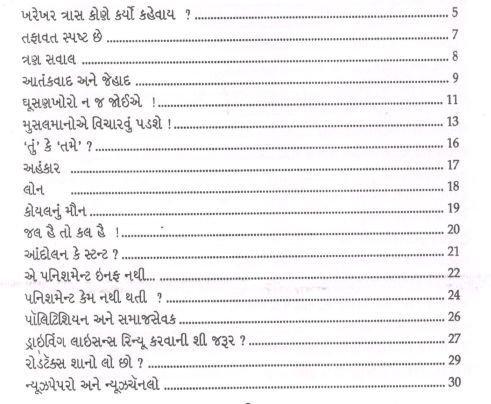 ખરેખર ત્રાસ કોણે કર્યો કહેવાય ? ........ 5
તફાવત સ્પષ્ટ છે ........ 7
ત્રણ સવાલ ........ 8
આતંકવાદ અને જેહાદ ........ 9
ઘૂસણખોરો ન જ જોઈએ ! ........ 11
મુસલમાનોએ વિચારવું પડશે ! ........ 13
'તું' કે 'તમે' ? ........ 16
અહંકાર ........ 17
લોન ........ 18
કોયલનું મૌન ........ 19
જલ હૈ તો કલ હૈ ! ........ 20
આંદોલન કે સ્ટન્ટ ? ........ 21
એ પનિશમેન્ટ ઇનફ નથી... ........ 22
પનિશમેન્ટ કેમ નથી થતી ? ........ 24
પૉલિટિશિયન અને સમાજસેવક ........ 26
ડ્રાઇવિંગ લાઇસન્સ રિન્યૂ કરવાની શી જરૂર ? ........ 27
રોડટૅક્સ શાનો લો છો ? ........ 29
ન્યૂઝપેપરો અને ન્યૂઝચૅનલો ........ 30